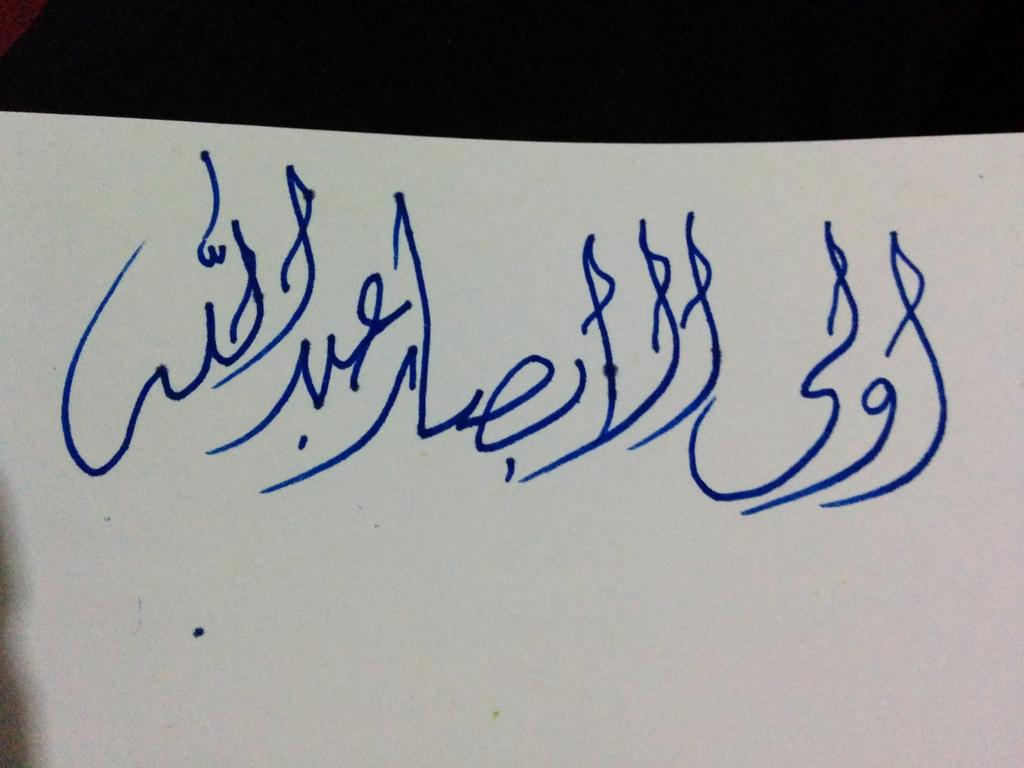 اولى الابصار عبد الله